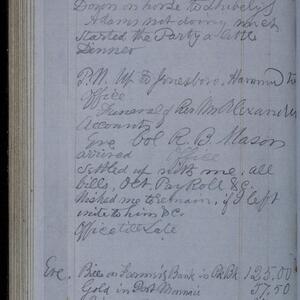 Down on horse to Shibely's
Adams not doing much
Started the Party a little
Dinner
P.M. Up to Jonesboro, Hammu to
Office
Funeral of Rev Mr Alexander
Accounts
Eve Col R. B. Mason
arrived Office
Settled up with me, all
bills, Oct. Pay Roll &c.
Wished me to remain, if I left
write to him &c.
Office till Late
Eve. Bills on Farmers Bank is 125.00
Gold in Port Monnaie 57.50